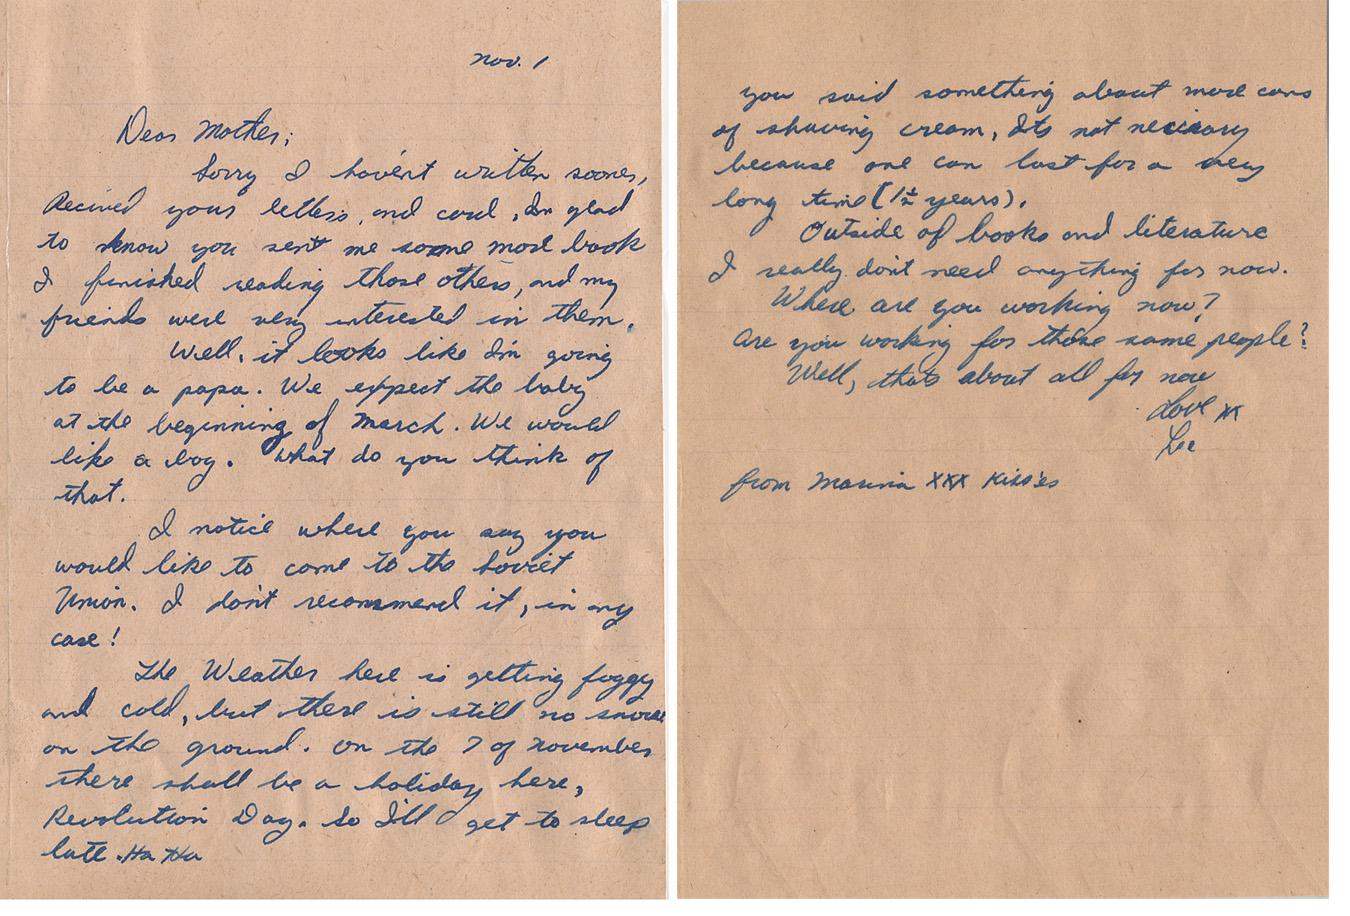 Nov. 1
Dear Mother;
Sorry I hav'ent written sooner,
Recived your letters, and card, I'm glad
to know you sent me some more book
I finished reading those others, and my
friends were very interested in them.
Well, it looks like I'm going
to be a papa. We expect the baby
at the beginning of March. We would
like a boy. What do you think of
that.
I notice where you say you
would like to come to the Soviet
Union. I don't recommend it, in my
case!
The Weather here is getting foggy
and cold, but there is still no snow
on the ground. On the 7 of November
there shall be a holiday here,
Revolution Day. So I'll get to sleep
late. Ha Ha
you said something about more cans
of shaving cream, Its not necissary
because one can last for a very
long time (1½ years).
Outside of books and literature
I really don't need anything for now.
Where are you working now?
Are you working for those same people?
Well, thats about all for now
Love XX
Lee
from Marina XXX Kiss'es